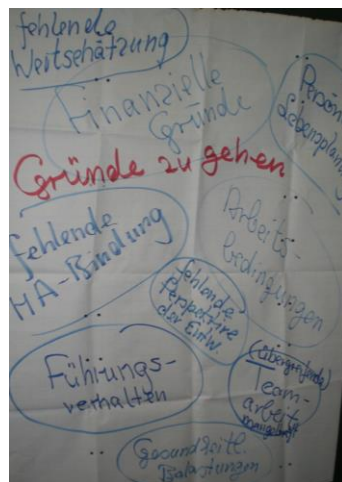 fehlende
Wertschätzung
Finanzielle
Gründe
Persön
Lebensplan
Gründe zu gehen
fehlende
MA-Bindung
Arbeits-
bedingungen
fehlende
Perspektive
der Entw.
Führungs-
verhalten
(übergreifende)
Team-
arbeit
mangelhaft
Gesundheitl.
Belastungen